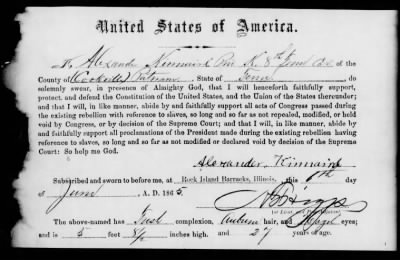 United States of America.
I, Alexander Kinnaird Pvt K. 8th Tenn Cav
County of (Cookville) Putnam, State of Tenn, do
solemnly swear, in presence of Almighty God, that I will henceforth faithfully support,
protect, and defend the Constitution of the United States, and the Union of the States thereunder;
and that I will, in like manner, abide by and faithfully support all acts of Congress passed during
the existing rebellion with reference to slaves, so long and so far as not repealed, modified, or held
void by Congress, or by decision of the Supreme Court; and that I will, in like manner, abide by
and faithfully support all proclamations of the President made during the existing rebellion having
reference to slaves, so long and so far as not modified or declared void by decision of the Supreme
Court: So help me God.
Alexander Kinnaird
Subscribed and sworn to before me, at Rock Island Barracks, Illinois, this day
of June A. D. 1865.
The above-named has complexion, Auburn hair, and Hazel eyes;
and is 5 feet 8½ inches high, and 27 years of age.